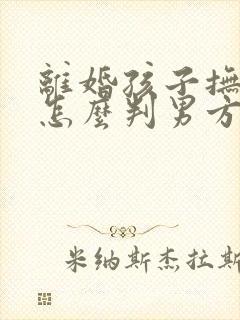 離婚孩子撫
怎麼判男方
米纳斯杰拉斯